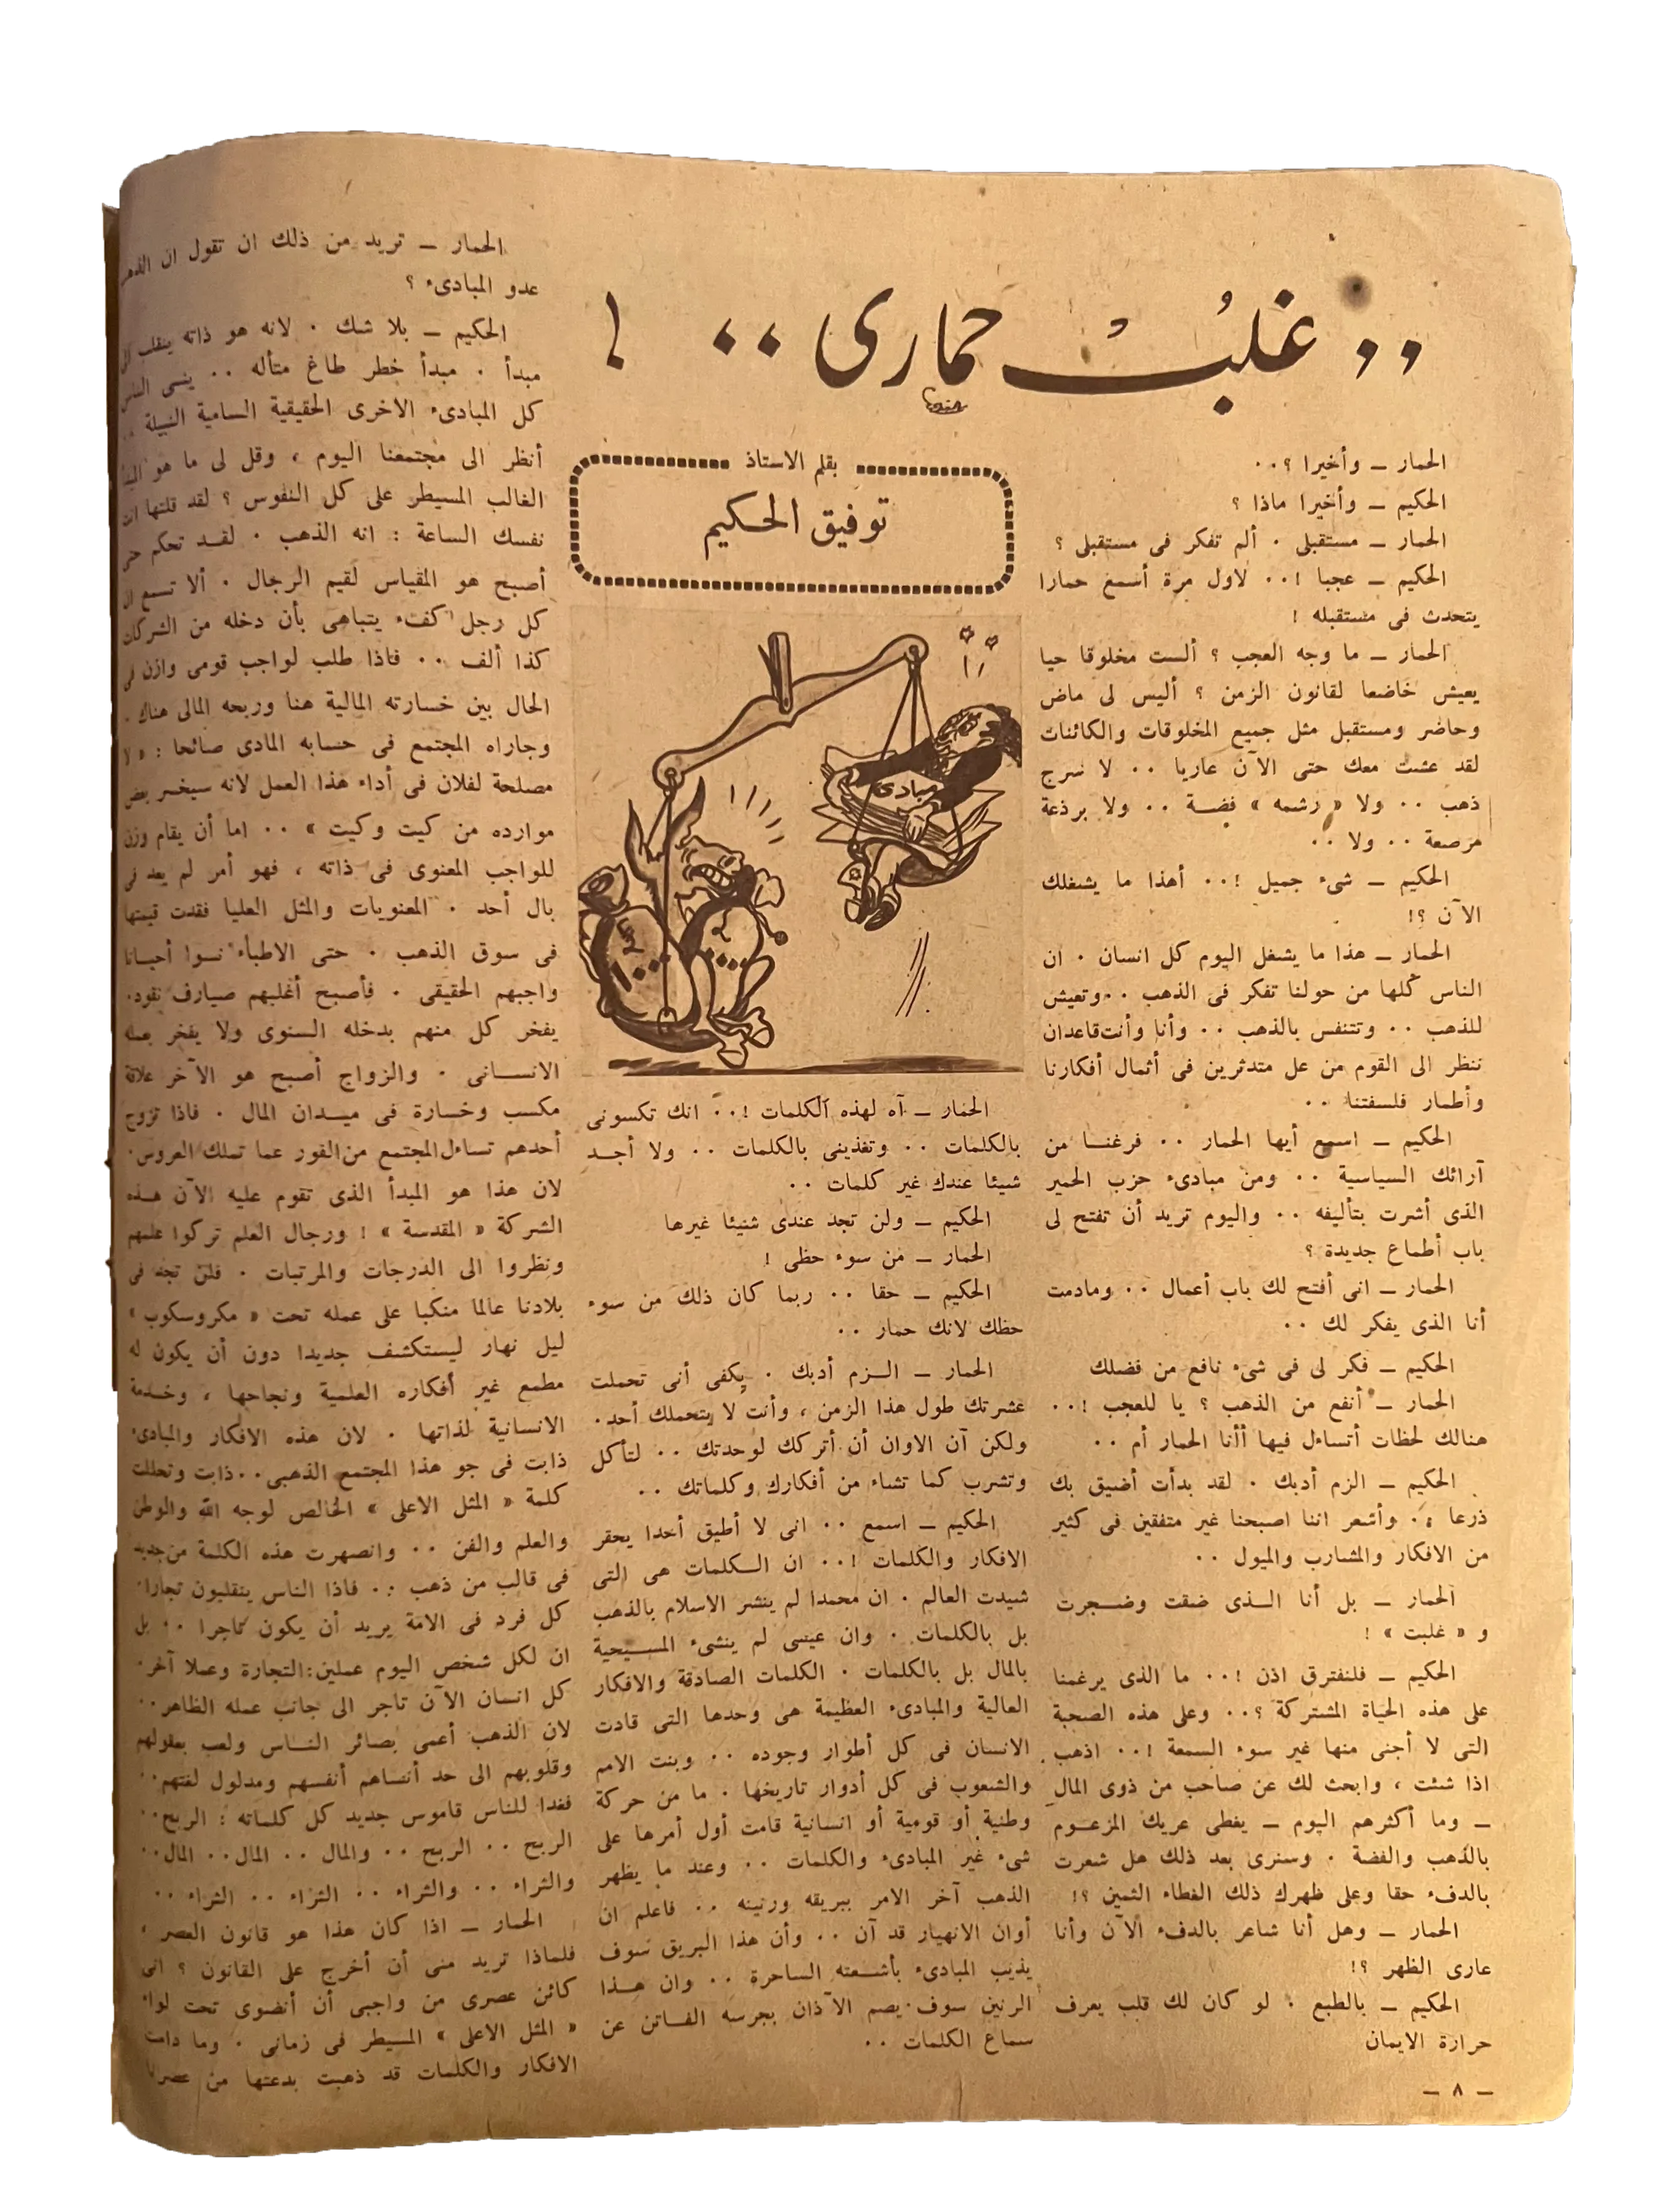 .. غلبُ حمارى .. !
بقلم الاستاذ
توفيق الحكيم
الحمار — وأخيرا ؟ ..
الحكيم — وأخيرا ماذا ؟
الحمار — مستقبلى . ألم تفكر فى مستقبلى ؟
الحكيم — عجبا !.. لاول مرة أسمع حمارا
يتحدث فى مستقبله !
الحمار — ما وجه العجب ؟ ألست مخلوقا حيا
يعيش خاضعا لقانون الزمن ؟ أليس لى ماض
وحاضر ومستقبل مثل جميع المخلوقات والكائنات
لقد عشت معك حتى الآن عاريا .. لا سرج
ذهب .. ولا « رشمه » فضة .. ولا برذعة
مرصعة .. ولا ..
الحكيم — شىء جميل !.. أهذا ما يشغلك
الآن ؟!
الحمار — هذا ما يشغل اليوم كل انسان . ان
الناس كلها من حولنا تفكر فى الذهب .. وتعيش
للذهب .. وتتنفس بالذهب .. وأنا وأنت قاعدان
ننظر الى القوم من عل متدثرين فى أثمال أفكارنا
وأطمار فلسفتنا ..
الحكيم — اسمع أيها الحمار .. فرغنا من
آرائك السياسية .. ومن مبادىء حزب الحمير
الذى أشرت بتأليفه .. واليوم تريد أن تفتح لى
باب أطماع جديدة ؟
الحمار — انى أفتح لك باب أعمال .. ومادمت
أنا الذى يفكر لك ..
الحكيم — فكر لى فى شىء نافع من فضلك
الحمار — أنفع من الذهب ؟ يا للعجب !..
هنالك لحظات أتساءل فيها أأنا الحمار أم ..
الحكيم — الزم أدبك . لقد بدأت أضيق بك
ذرعا .. وأشعر اننا اصبحنا غير متفقين فى كثير
من الافكار والمشارب والميول ..
الحمار — بل أنا الذى ضقت وضجرت
و « غلبت » !
الحكيم — فلنفترق اذن !.. ما الذى يرغمنا
على هذه الحياة المشتركة ؟.. وعلى هذه الصحبة
التى لا أجنى منها غير سوء السمعة !.. اذهب
اذا شئت ، وابحث لك عن صاحب من ذوى المال
— وما أكثرهم اليوم — يغطى عريك المزعوم
بالذهب والفضة . وسنرى بعد ذلك هل شعرت
بالدفء حقا وعلى ظهرك ذلك الغطاء الثمين ؟!
الحمار — وهل أنا شاعر بالدفء الآن وأنا
عارى الظهر ؟!
الحكيم — بالطبع . لو كان لك قلب يعرف
حرارة الايمان
— ٨ —
مبادىء
الحمار — آه لهذه الكلمات !.. انك تكسونى
بالكلمات .. وتغذينى بالكلمات .. ولا أجد
شيئا عندك غير كلمات ..
الحكيم — ولن تجد عندى شيئا غيرها
الحمار — من سوء حظى !
الحكيم — حقا .. ربما كان ذلك من سوء
حظك لانك حمار ..
الحمار — الزم أدبك . يكفى أنى تحملت
عشرتك طول هذا الزمن ، وأنت لا يتحملك أحد .
ولكن آن الاوان أن أتركك لوحدتك .. لتأكل
وتشرب كما تشاء من أفكارك وكلماتك ..
الحكيم — اسمع .. انى لا أطيق أحدا يحقر
الافكار والكلمات !.. ان الكلمات هى التى
شيدت العالم . ان محمدا لم ينشر الاسلام بالذهب
بل بالكلمات . وان عيسى لم ينشىء المسيحية
بالمال بل بالكلمات . الكلمات الصادقة والافكار
العالية والمبادىء العظيمة هى وحدها التى قادت
الانسان فى كل أطوار وجوده .. وبنت الامم
والشعوب فى كل أدوار تاريخها . ما من حركة
وطنية أو قومية أو انسانية قامت أول أمرها على
شىء غير المبادىء والكلمات .. وعند ما يظهر
الذهب آخر الامر ببريقه ورنينه .. فاعلم ان
أوان الانهيار قد آن .. وأن هذا البريق سوف
يذيب المبادىء بأشعته الساحرة .. وان هذا
الرنين سوف يصم الآذان بجرسه الفاتن عن
سماع الكلمات ..
الحمار — تريد من ذلك ان تقول ان الذهب
عدو المبادىء ؟
الحكيم — بلا شك . لانه هو ذاته ينقلب الى
مبدأ . مبدأ خطر طاغ متأله .. ينسى الناس
كل المبادىء الاخرى الحقيقية السامية النبيلة ..
أنظر الى مجتمعنا اليوم ، وقل لى ما هو المبدأ
الغالب المسيطر على كل النفوس ؟ لقد قلتها انت
نفسك الساعة : انه الذهب . لقد تحكم حتى
أصبح هو المقياس لقيم الرجال . ألا تسمع ان
كل رجل كفء يتباهى بأن دخله من الشركات
كذا ألف .. فاذا طلب لواجب قومى وازن فى
الحال بين خسارته المالية هنا وربحه المالى هناك .
وجاراه المجتمع فى حسابه المادى صائحا : « لا
مصلحة لفلان فى أداء هذا العمل لانه سيخسر بعض
موارده من كيت وكيت » .. اما أن يقام وزن
للواجب المعنوى فى ذاته ، فهو أمر لم يعد فى
بال أحد . المعنويات والمثل العليا فقدت قيمتها
فى سوق الذهب . حتى الاطباء نسوا أحيانا
واجبهم الحقيقى . فأصبح أغلبهم صيارف نقود .
يفخر كل منهم بدخله السنوى ولا يفخر بعمله
الانسانى . والزواج أصبح هو الآخر علاقة
مكسب وخسارة فى ميدان المال . فاذا تزوج
أحدهم تساءل المجتمع من الفور عما تملك العروس .
لان هذا هو المبدأ الذى تقوم عليه الآن هذه
الشركة « المقدسة » ! ورجال العلم تركوا علمهم
ونظروا الى الدرجات والمرتبات . فلن تجد فى
بلادنا عالما منكبا على عمله تحت « مكروسكوب »
ليل نهار ليستكشف جديدا دون أن يكون له
مطمع غير أفكاره العلمية ونجاحها ، وخدمة
الانسانية لذاتها . لان هذه الافكار والمبادىء
ذابت فى جو هذا المجتمع الذهبى .. ذابت وتحللت
كلمة « المثل الاعلى » الخالص لوجه الله والوطن
والعلم والفن .. وانصهرت هذه الكلمة من جديد
فى قالب من ذهب .. فاذا الناس ينقلبون تجارا .
كل فرد فى الامة يريد أن يكون تاجرا .. بل
ان لكل شخص اليوم عملين : التجارة وعملا آخر .
كل انسان الآن تاجر الى جانب عمله الظاهر ..
لان الذهب أعمى بصائر الناس ولعب بعقولهم
وقلوبهم الى حد أنساهم أنفسهم ومدلول لغتهم ..
فغدا للناس قاموس جديد كل كلماته : الربح ..
الربح .. الربح .. والمال .. المال .. المال ..
والثراء .. والثراء .. الثراء .. الثراء ..
الحمار — اذا كان هذا هو قانون العصر ،
فلماذا تريد منى أن أخرج على القانون ؟ انى
كائن عصرى من واجبى أن أنضوى تحت لواء
« المثل الاعلى » المسيطر فى زمانى . وما دامت
الافكار والكلمات قد ذهبت بدعتها من عصرنا